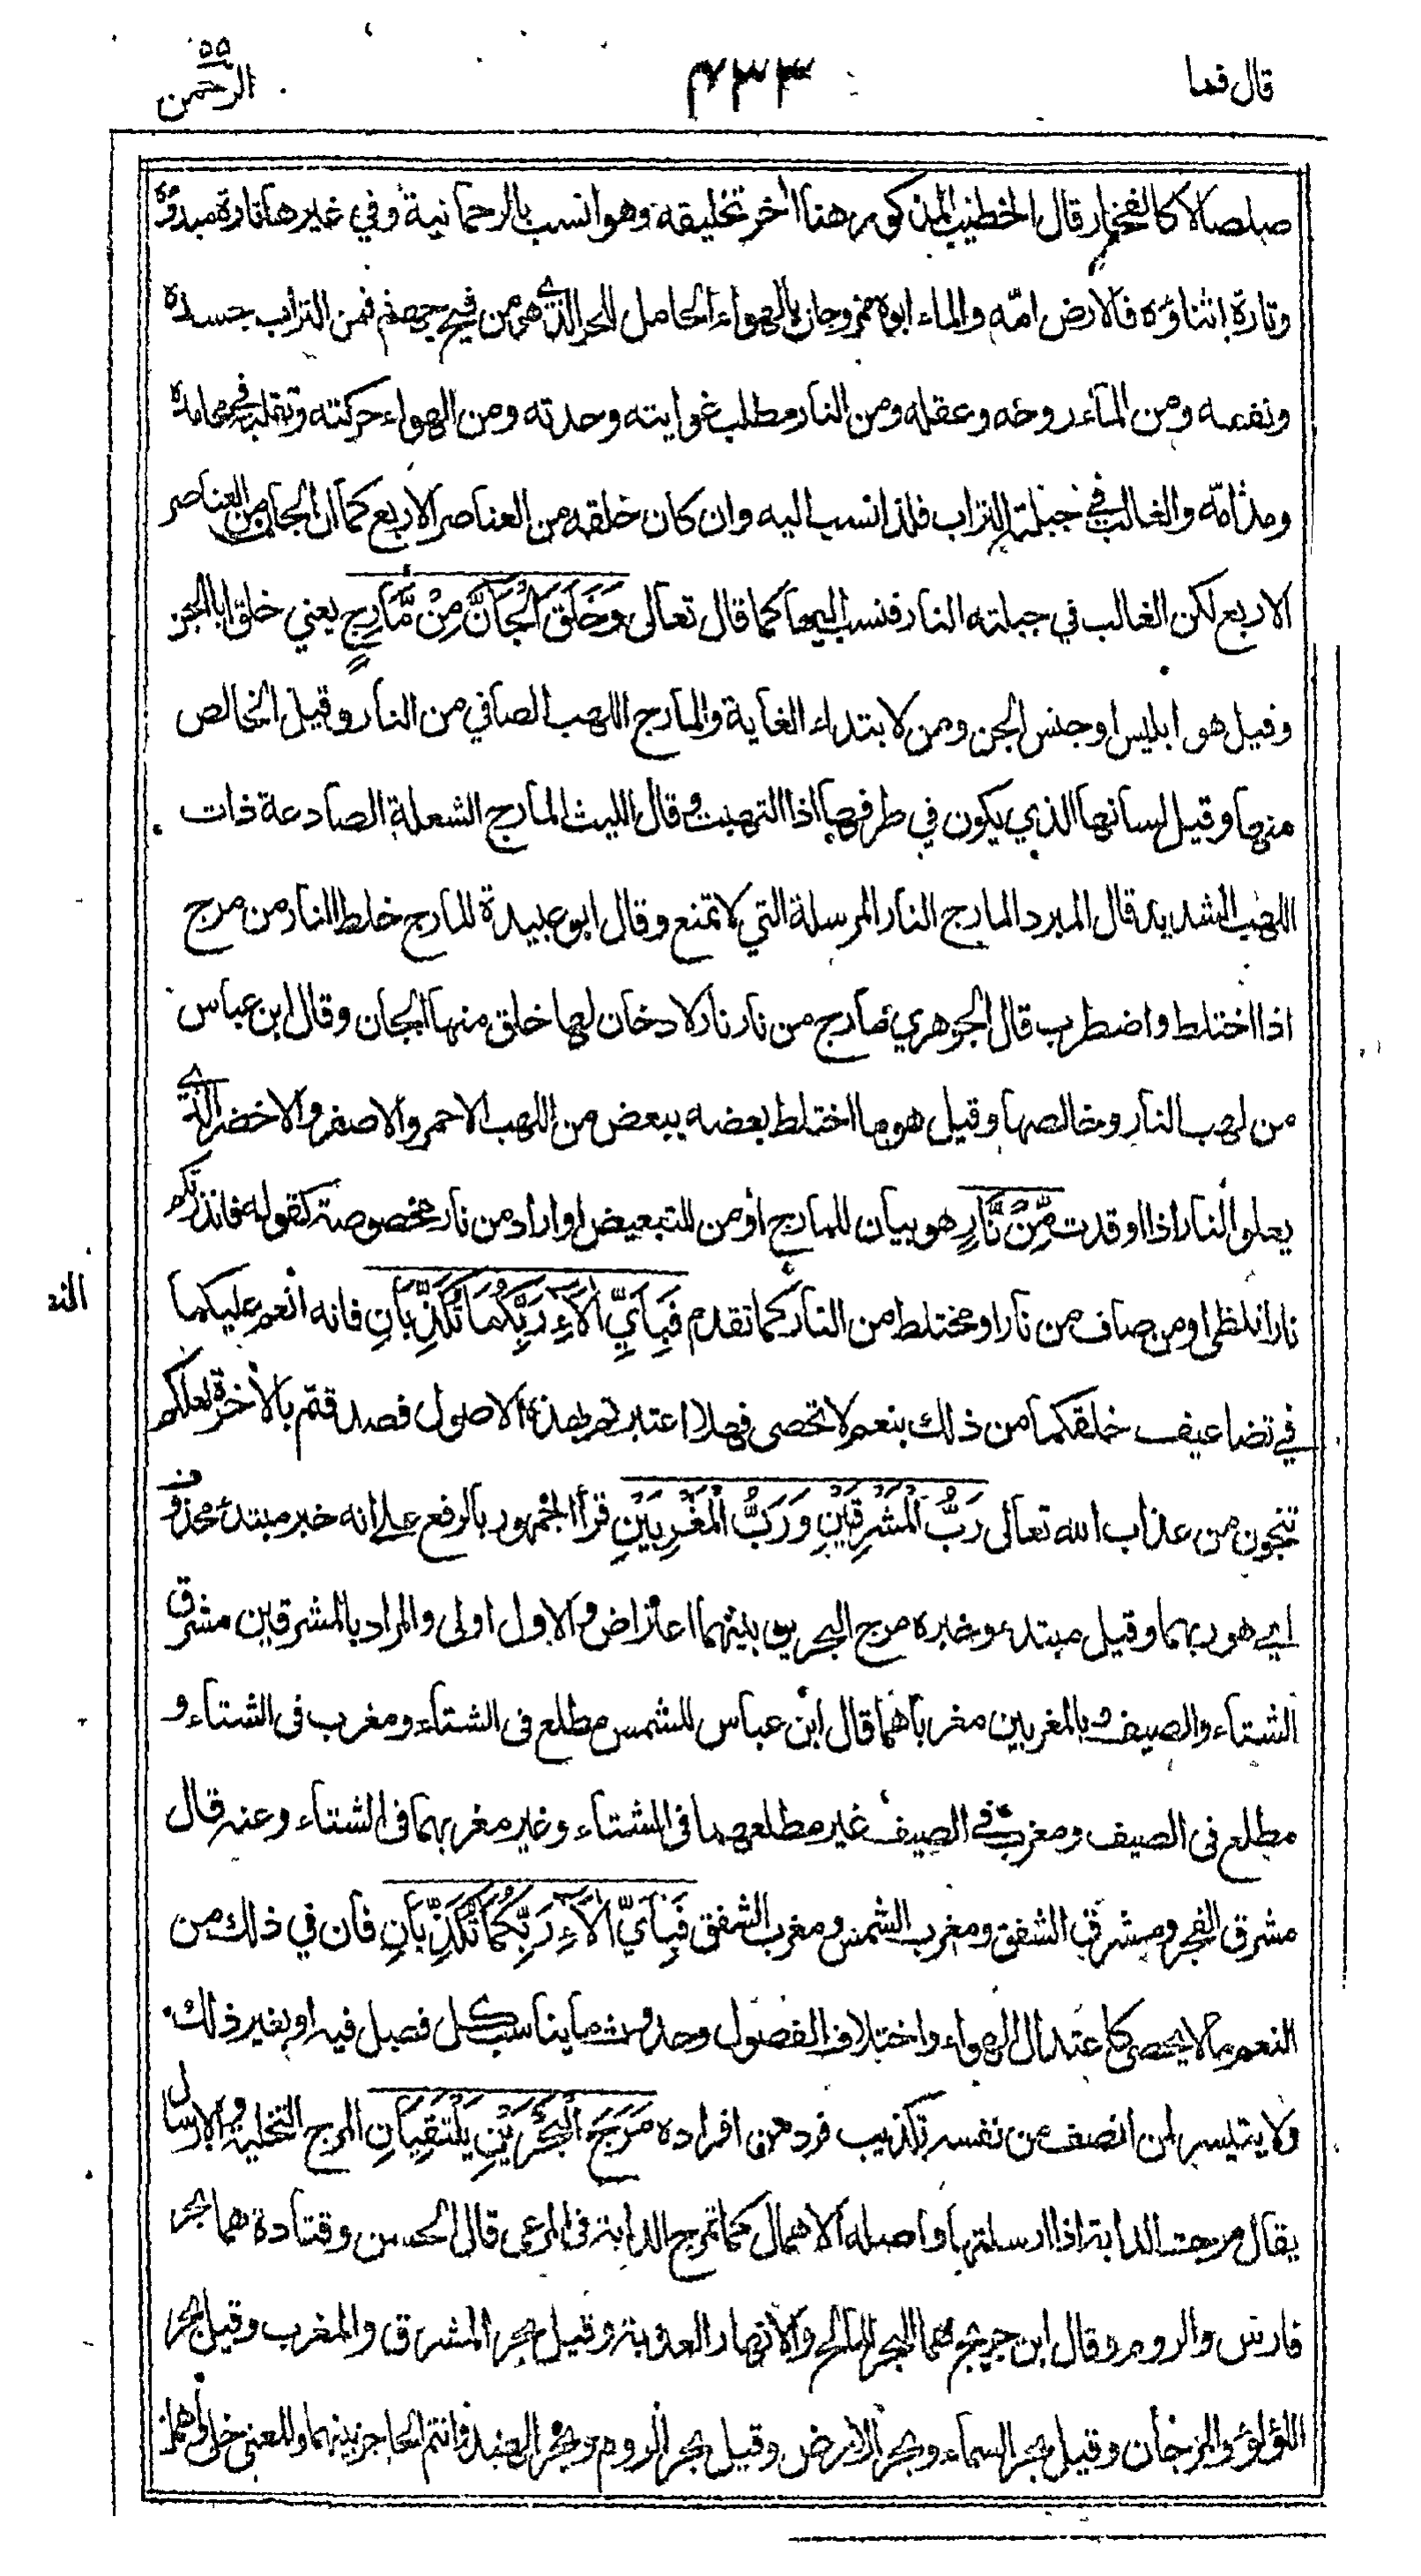 قال فما
٧٣٣
٥٥
الرحمن
صلصالا كالفخار قال الخطيب المذكور هنا اخر تخليقه وهو انسب بالرحمانية وفي غيرها تارة مبدؤه
وتارة اثناؤه فالارض امّه والماء ابوه ممزوجان بالهواء الحامل للحر الذي هو من فيح جهنم فمن التراب جسده
ونفسه ومن الماء روحه وعقله ومن النار مطلب غوايته وحدته ومن الهواء حركته وتقلبه في محامده
ومذامّه والغالب في جبلته التراب فلذا نسب اليه وان كان خلقه من العناصر الاربع كما ان الجان من العناصر
الاربع لكن الغالب في جبلته النار فنسب اليها كما قال تعالى وَخَلَقَ الْجَانَّ مِنْ مَّارِجٍ يعني خلق ابا الجن
وقيل هو ابليس او جنس الجن ومن لابتداء الغاية والمارج اللهب الصافي من النار وقيل الخالص
منها وقيل لسانها الذي يكون في طرفها اذا التهبت وقال الليث المارج الشعلة الصادعة ذات
اللهب الشديد قال المبرد المارج النار المرسلة التي لا تمنع وقال ابو عبيدة المارج خلط النار من مرج
اذا اختلط واضطرب قال الجوهري مارج من نار نار لا دخان لها خلق منها الجان وقال ابن عباس
من لهب النار وخالصها وقيل هو ما اختلط بعضه ببعض من اللهب الاحمر والاصفر والاخضر الذي
يعلو النار اذا اوقدت مِّنْ نَّارٍ هو بيان للمارج او من للتبعيض او اراد من نار مخصوصة كقوله فانذرتكم
نارا تلظى او من صاف من نار او مختلط من النار كما تقدم فَبِاَيِّ اٰلَآءِ رَبِّكُمَا تُكَذِّبَانِ فانه انعم عليكما
في تضاعيف خلقكما من ذلك بنعم لا تحصى فهلا اعتبرتم بهذه الاصول فصدقتم بالاخرة لعلكم
تنجون من عذاب الله تعالى رَبُّ الْمَشْرِقَيْنِ وَرَبُّ الْمَغْرِبَيْنِ قرأ الجمهور بالرفع على انه خبر مبتدء محذوف
اي هو ربهما وقيل مبتدء وخبره مرج البحرين وبينهما اعتراض والاول اولى والمراد بالمشرقين مشرق
الشتاء والصيف وبالمغربين مغرباهما قال ابن عباس للشمس مطلع في الشتاء ومغرب في الشتاء و
مطلع في الصيف ومغرب في الصيف غير مطلعهما في الشتاء وغير مغربهما في الشتاء وعنه قال
مشرق الفجر ومشرق الشفق ومغرب الشمس ومغرب الشفق فَبِاَيِّ اٰلَآءِ رَبِّكُمَا تُكَذِّبَانِ فان في ذلك من
النعم ما لا يحصى كاعتدال الهواء واختلاف الفصول وحدوث ما يناسب كل فصل فيه او بغير ذلك
ولا يتيسر لمن انصف من نفسه تكذيب فرد من افراده مَرَجَ الْبَحْرَيْنِ يَلْتَقِيَانِ المرج التخلية والارسال
يقال مرجت الدابة اذا ارسلتها واصله الاهمال كما تمرج الدابة في المرعى قال الحسن وقتادة هما بحر
فارس والروم وقال ابن جريج هما البحر المالح والانهار العذبة وقيل بحر المشرق والمغرب وقيل بحر
اللؤلؤ والمرجان وقيل بحر السماء وبحر الارض وقيل بحر الروم وبحر الهند وانتم الحاجز بينهما والمعنى خلاهما